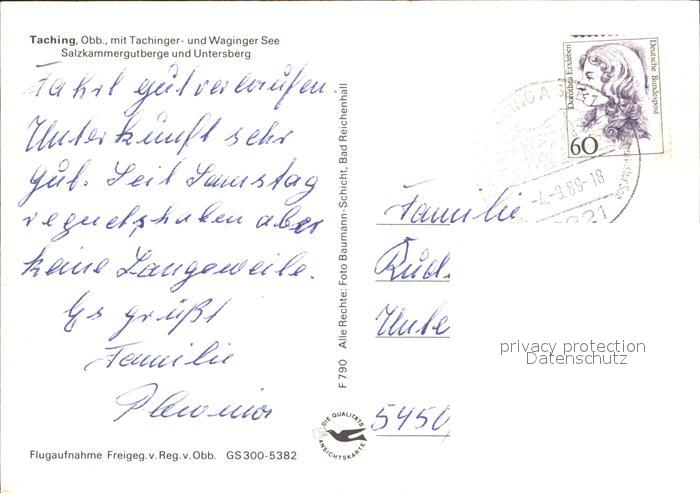 Taching, Obb., mit Tachinger- und Waginger See
Salzkammergutberge und Untersberg
Fahrt gut verlaufen.
Unterkunft sehr
gut. Seit Samstag
regnets, haben aber
keine Langeweile.
Es grüßt
Familie
F 790 Alle Rechte: Foto Baumann-Schicht, Bad Reichenhall
Dorothea Erxleben
Deutsche Bundespost
60
-4.-9.89-18
Familie
Rud.
Unte
5450
privacy protection
Datenschutz
DIE QUALITÄTS
ANSICHTSKARTE
Flugaufnahme Freigeg. v. Reg. v. Obb. GS 300-5382